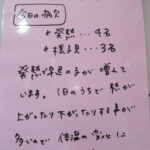 今日の病欠
# 発熱...4名
# 様子見...3名
発熱で早退の子が増えて
います。1日のうちで熱が
上がったり下がったりする事が
多いので 体温の変化に